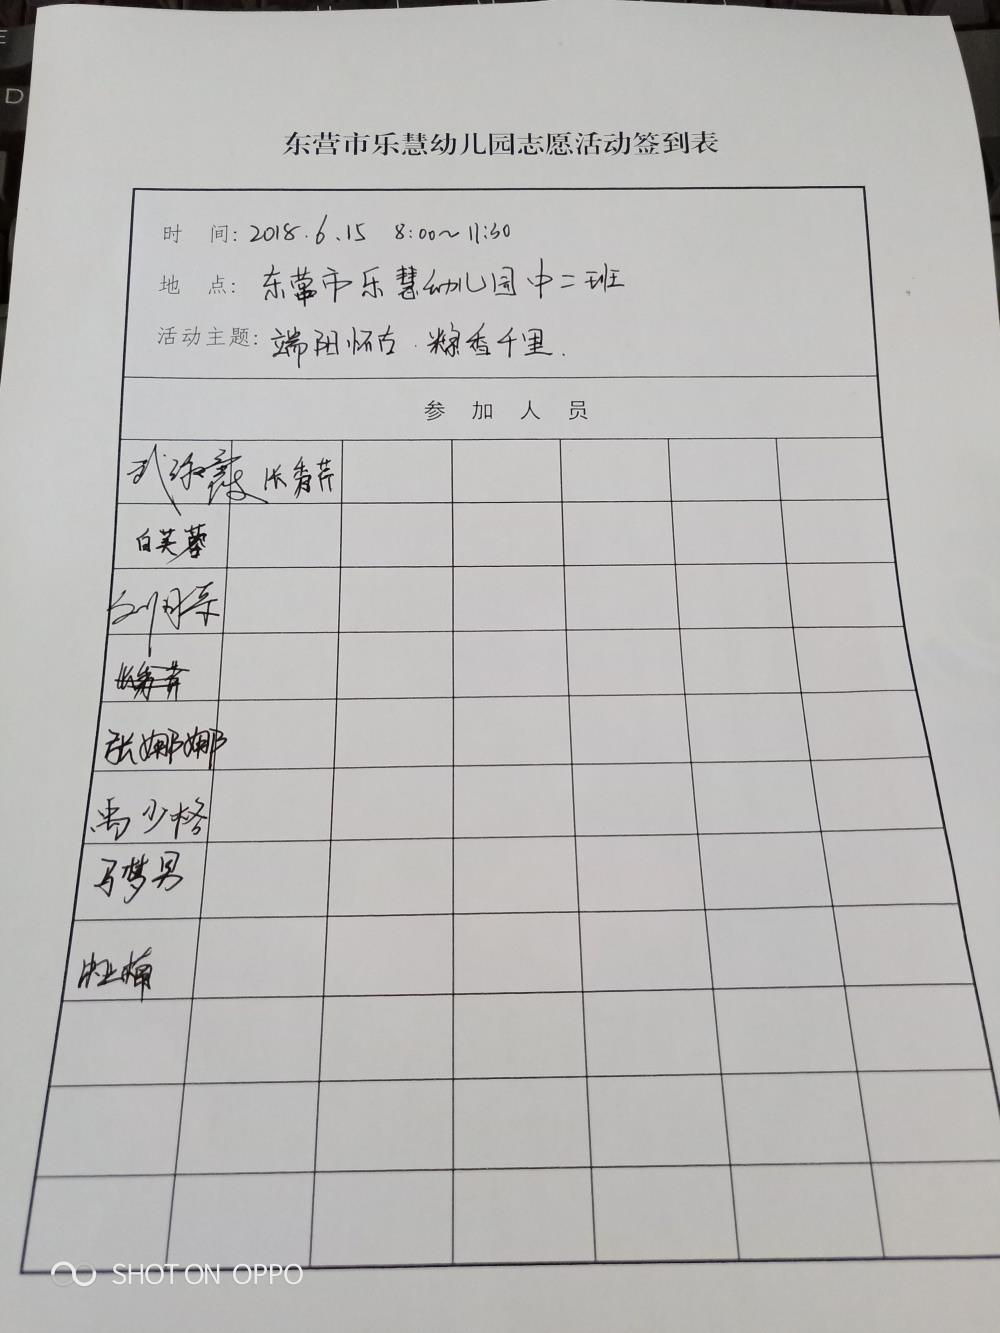 东营市乐慧幼儿园志愿活动签到表
时 间: 2018.6.15 8:00~11:30
地 点: 东营市乐慧幼儿园中二班
活动主题: 端阳怀古.粽香千里.
参 加 人 员
张秀芹
白芙蓉
张娜娜
马梦男
SHOT ON OPPO
E
D